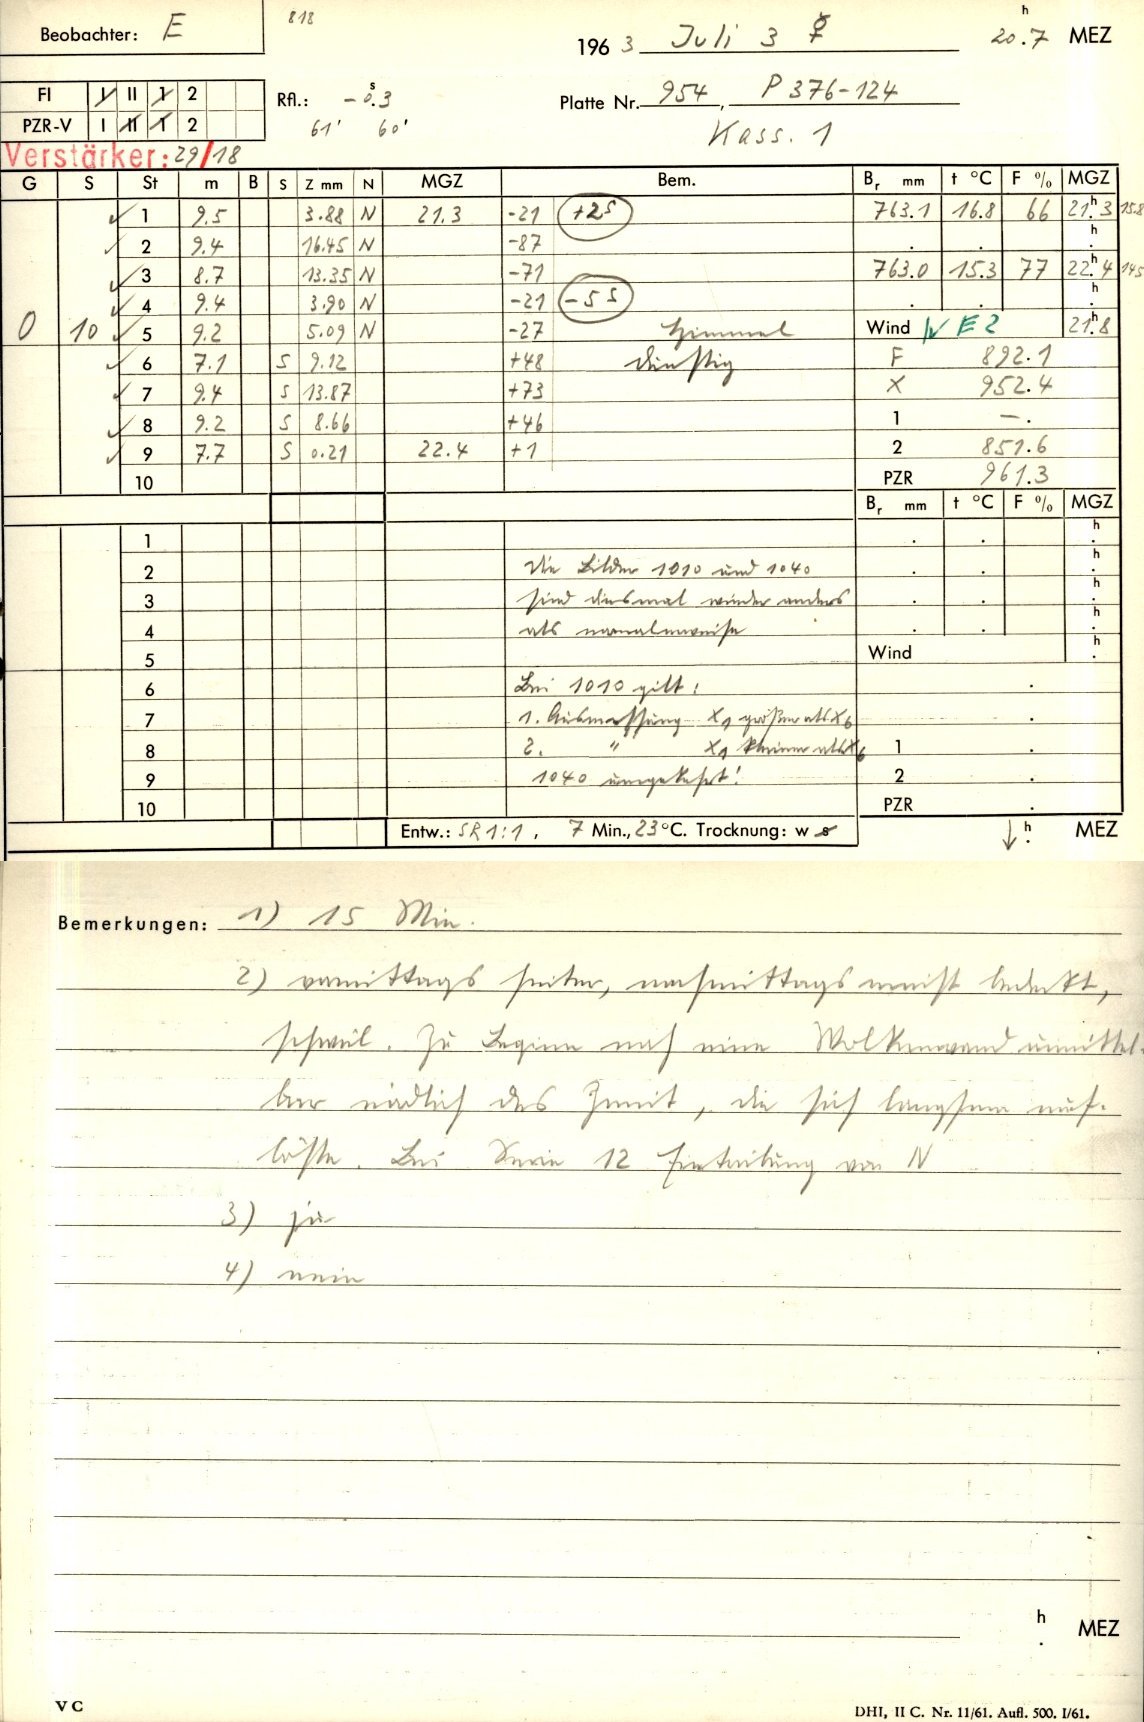 Beobachter: E
818
1963 Juli 3 ☿ 20h.7 MEZ
FI I II 1 2
Rfl.: -0s.3
Platte Nr. 954, P 376-124
PZR-V I II 1 2
61' 60'
Kass. 1
Verstärker: 29/18
G S St m B S Z mm N MGZ Bem. Br mm t °C F % MGZ
✓ 1 9.5 3.88 N 21.3 -21 +25 763.1 16.8 66 21h.3 15.8
✓ 2 9.4 16.45 N -87 . . h.
✓ 3 8.7 13.35 N -71 763.0 15.3 77 22h.4 14.5
✓ 4 9.4 3.90 N -21 -55 . . h.
0 10 ✓ 5 9.2 5.09 N -27 Himmel Wind NE 2 21h.8
✓ 6 7.1 S 9.12 +48 dunstig F 892.1
✓ 7 9.4 S 13.87 +73 X 952.4
✓ 8 9.2 S 8.66 +46 1 —.
✓ 9 7.7 S 0.21 22.4 +1 2 851.6
10 PZR 961.3
Br mm t °C F % MGZ
1 . . h.
2 Die Bilder 1010 und 1040 . . h.
3 sind diesmal wieder anders . . h.
4 als normalerweise . . h.
5 Wind h.
6 Bei 1010 gilt: .
7 1. Ausmessung X1 größer als X6 .
8 2. " X1 kleiner als X6 1 .
9 1040 umgekehrt! 2 .
10 PZR .
Entw.: SR 1:1, 7 Min., 23°C. Trocknung: w s ↓ h. MEZ
Bemerkungen: 1) 15 Min.
2) vormittags heiter, nachmittags meist bedeckt,
schwül. Zu Beginn noch eine Wolkenwand unmittel-
bar nördlich des Zenit, die sich langsam auf-
löste. Bei Serie 12 Eintrübung von N
3) ja
4) nein
h. MEZ
V C
DHI, II C. Nr. 11/61. Aufl. 500. I/61.